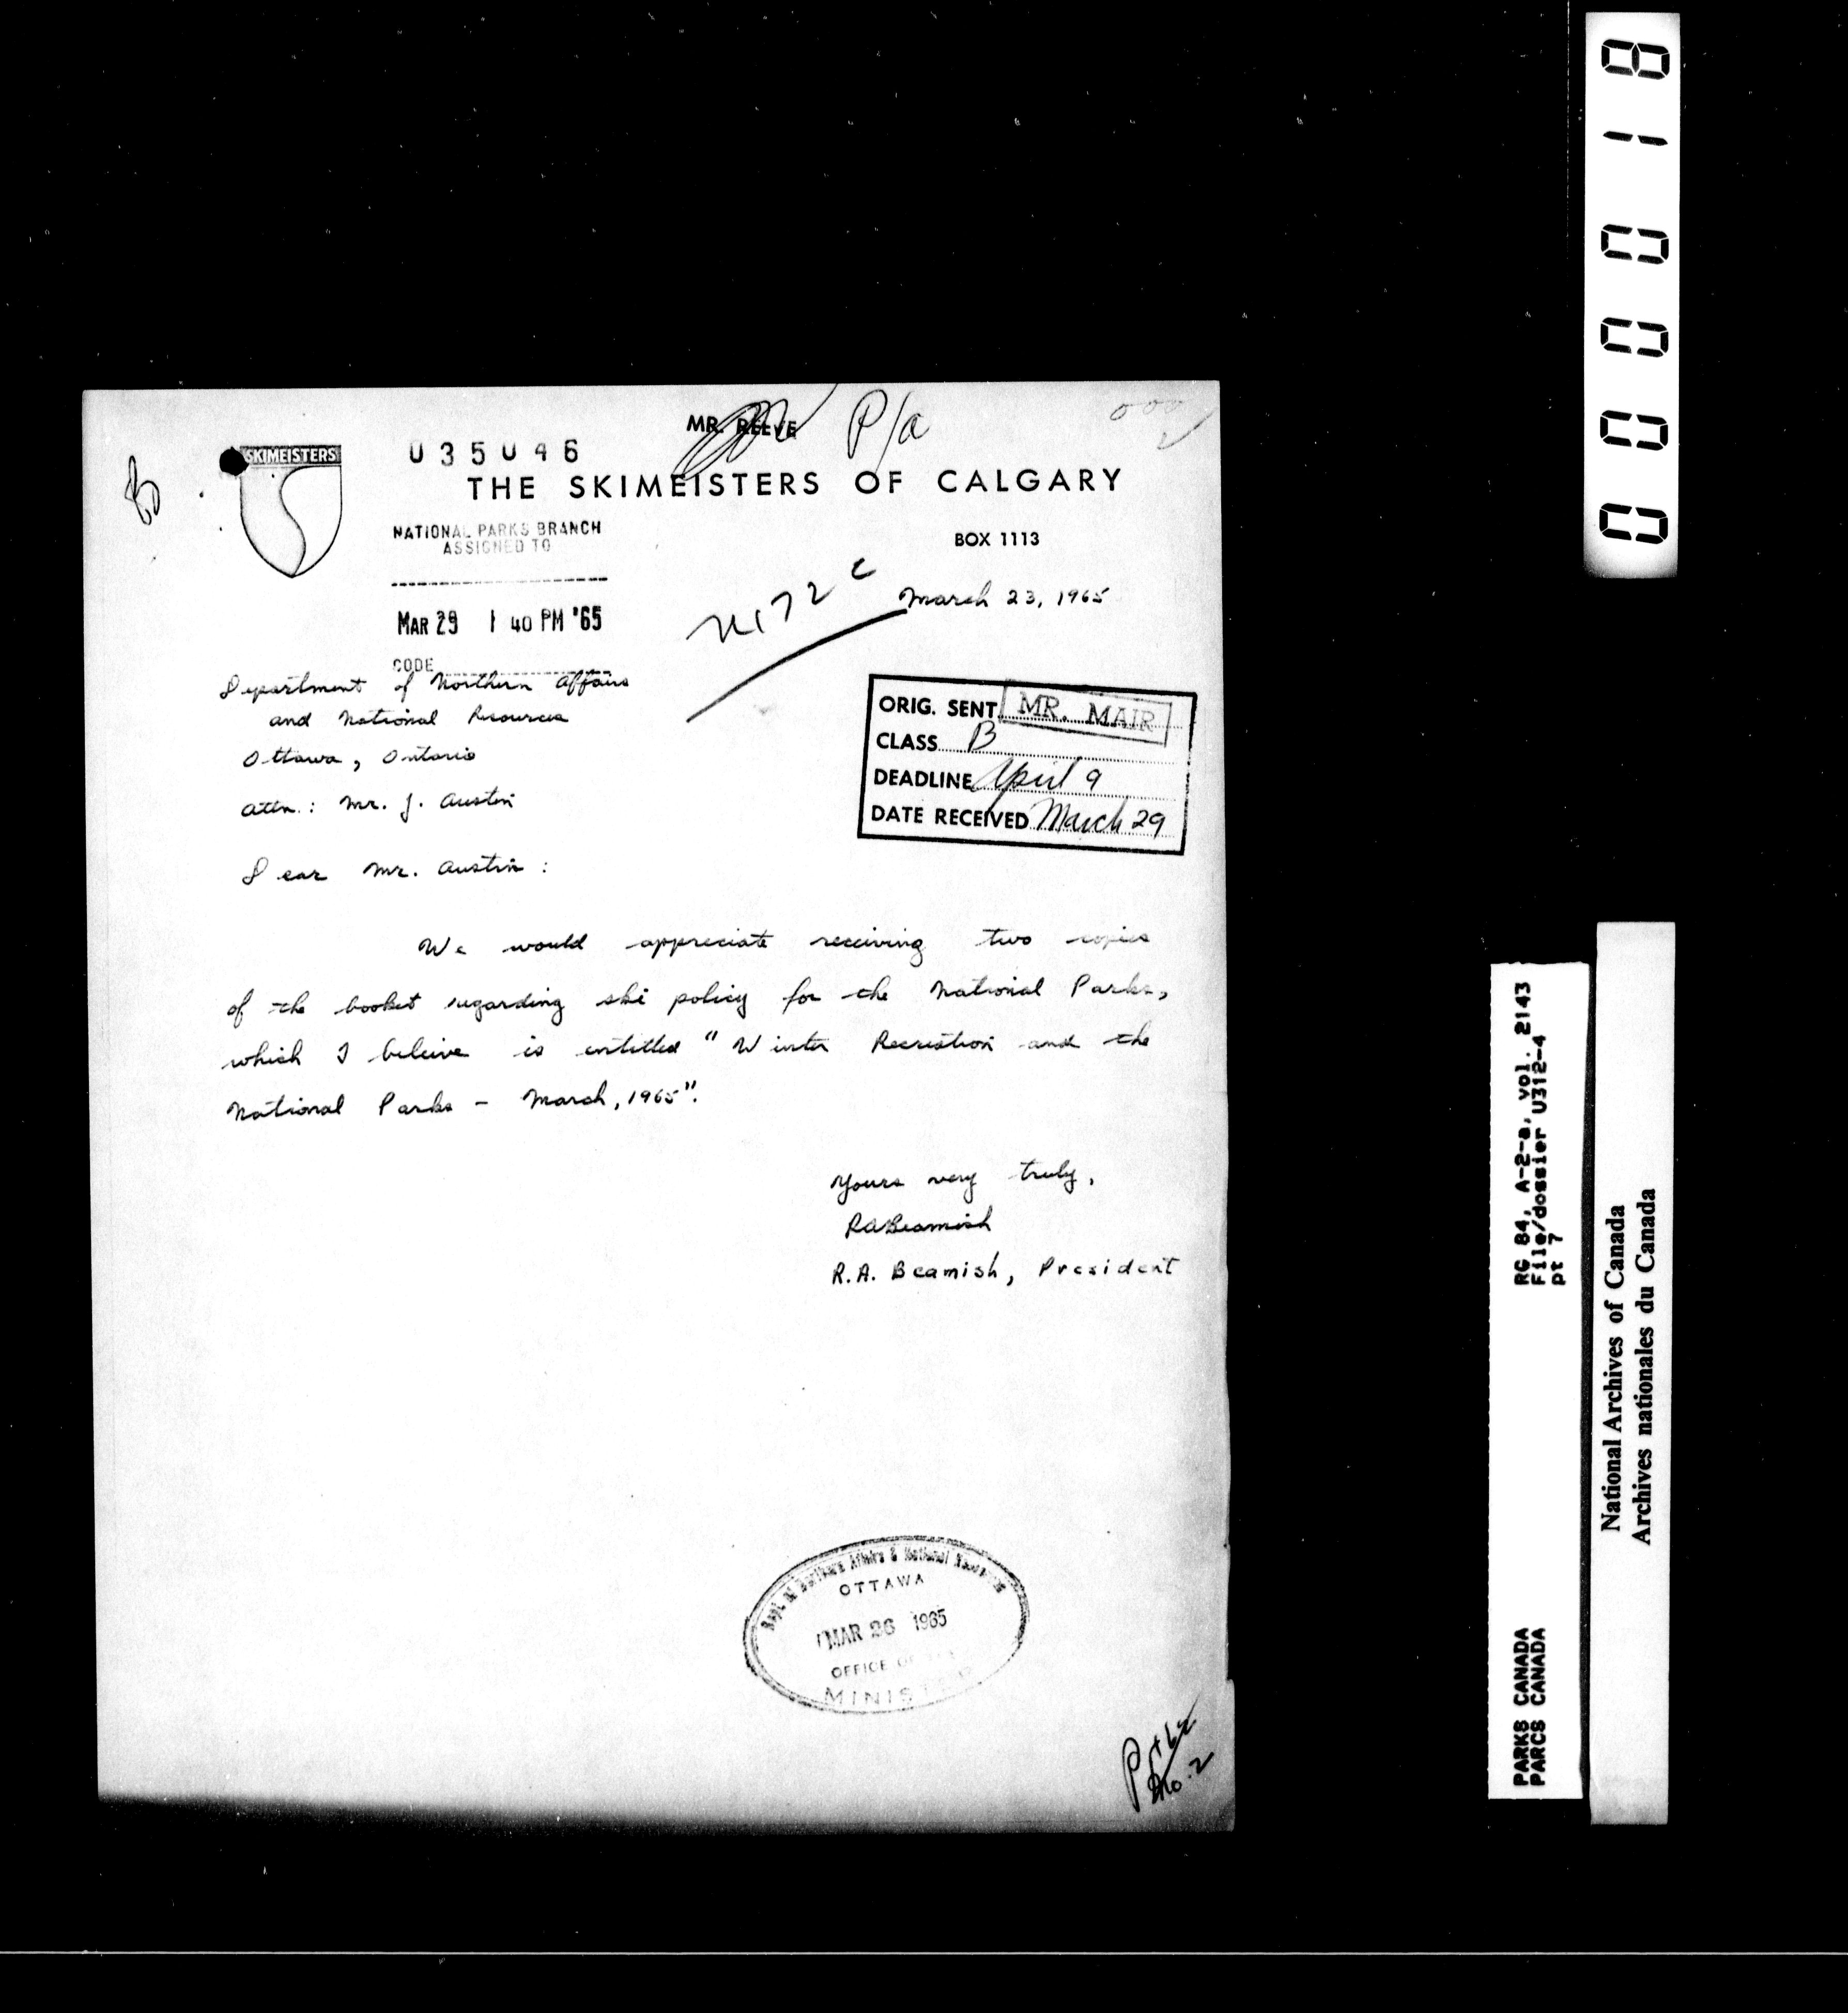 MR. REEVE
P/a
000
SKIMEISTERS
035046
THE SKIMEISTERS OF CALGARY
NATIONAL PARKS BRANCH
ASSIGNED TO
BOX 1113
March 23, 1965
MAR 29 1 40 PM '65
CODE
Department of Northern Affairs
and National Resources
Ottawa, Ontario
Attn.: Mr. J. Austin
ORIG. SENT MR. MAIR
CLASS B
DEADLINE April 9
DATE RECEIVED March 29
Dear Mr. Austin:
We would appreciate receiving two copies
of the booket regarding ski policy for the National Parks,
which I beleive is entitled "Winter Recreation and the
National Parks - March, 1965".
Yours very truly,
RABeamish
R.A. Beamish, President
Dept. of Northern Affairs & National Resources
OTTAWA
MAR 26 1965
OFFICE OF THE
MINISTER
000018
RG 84, A-2-a, vol. 2143
File/dossier U312-4
pt 7
PARKS CANADA
PARCS CANADA
National Archives of Canada
Archives nationales du Canada